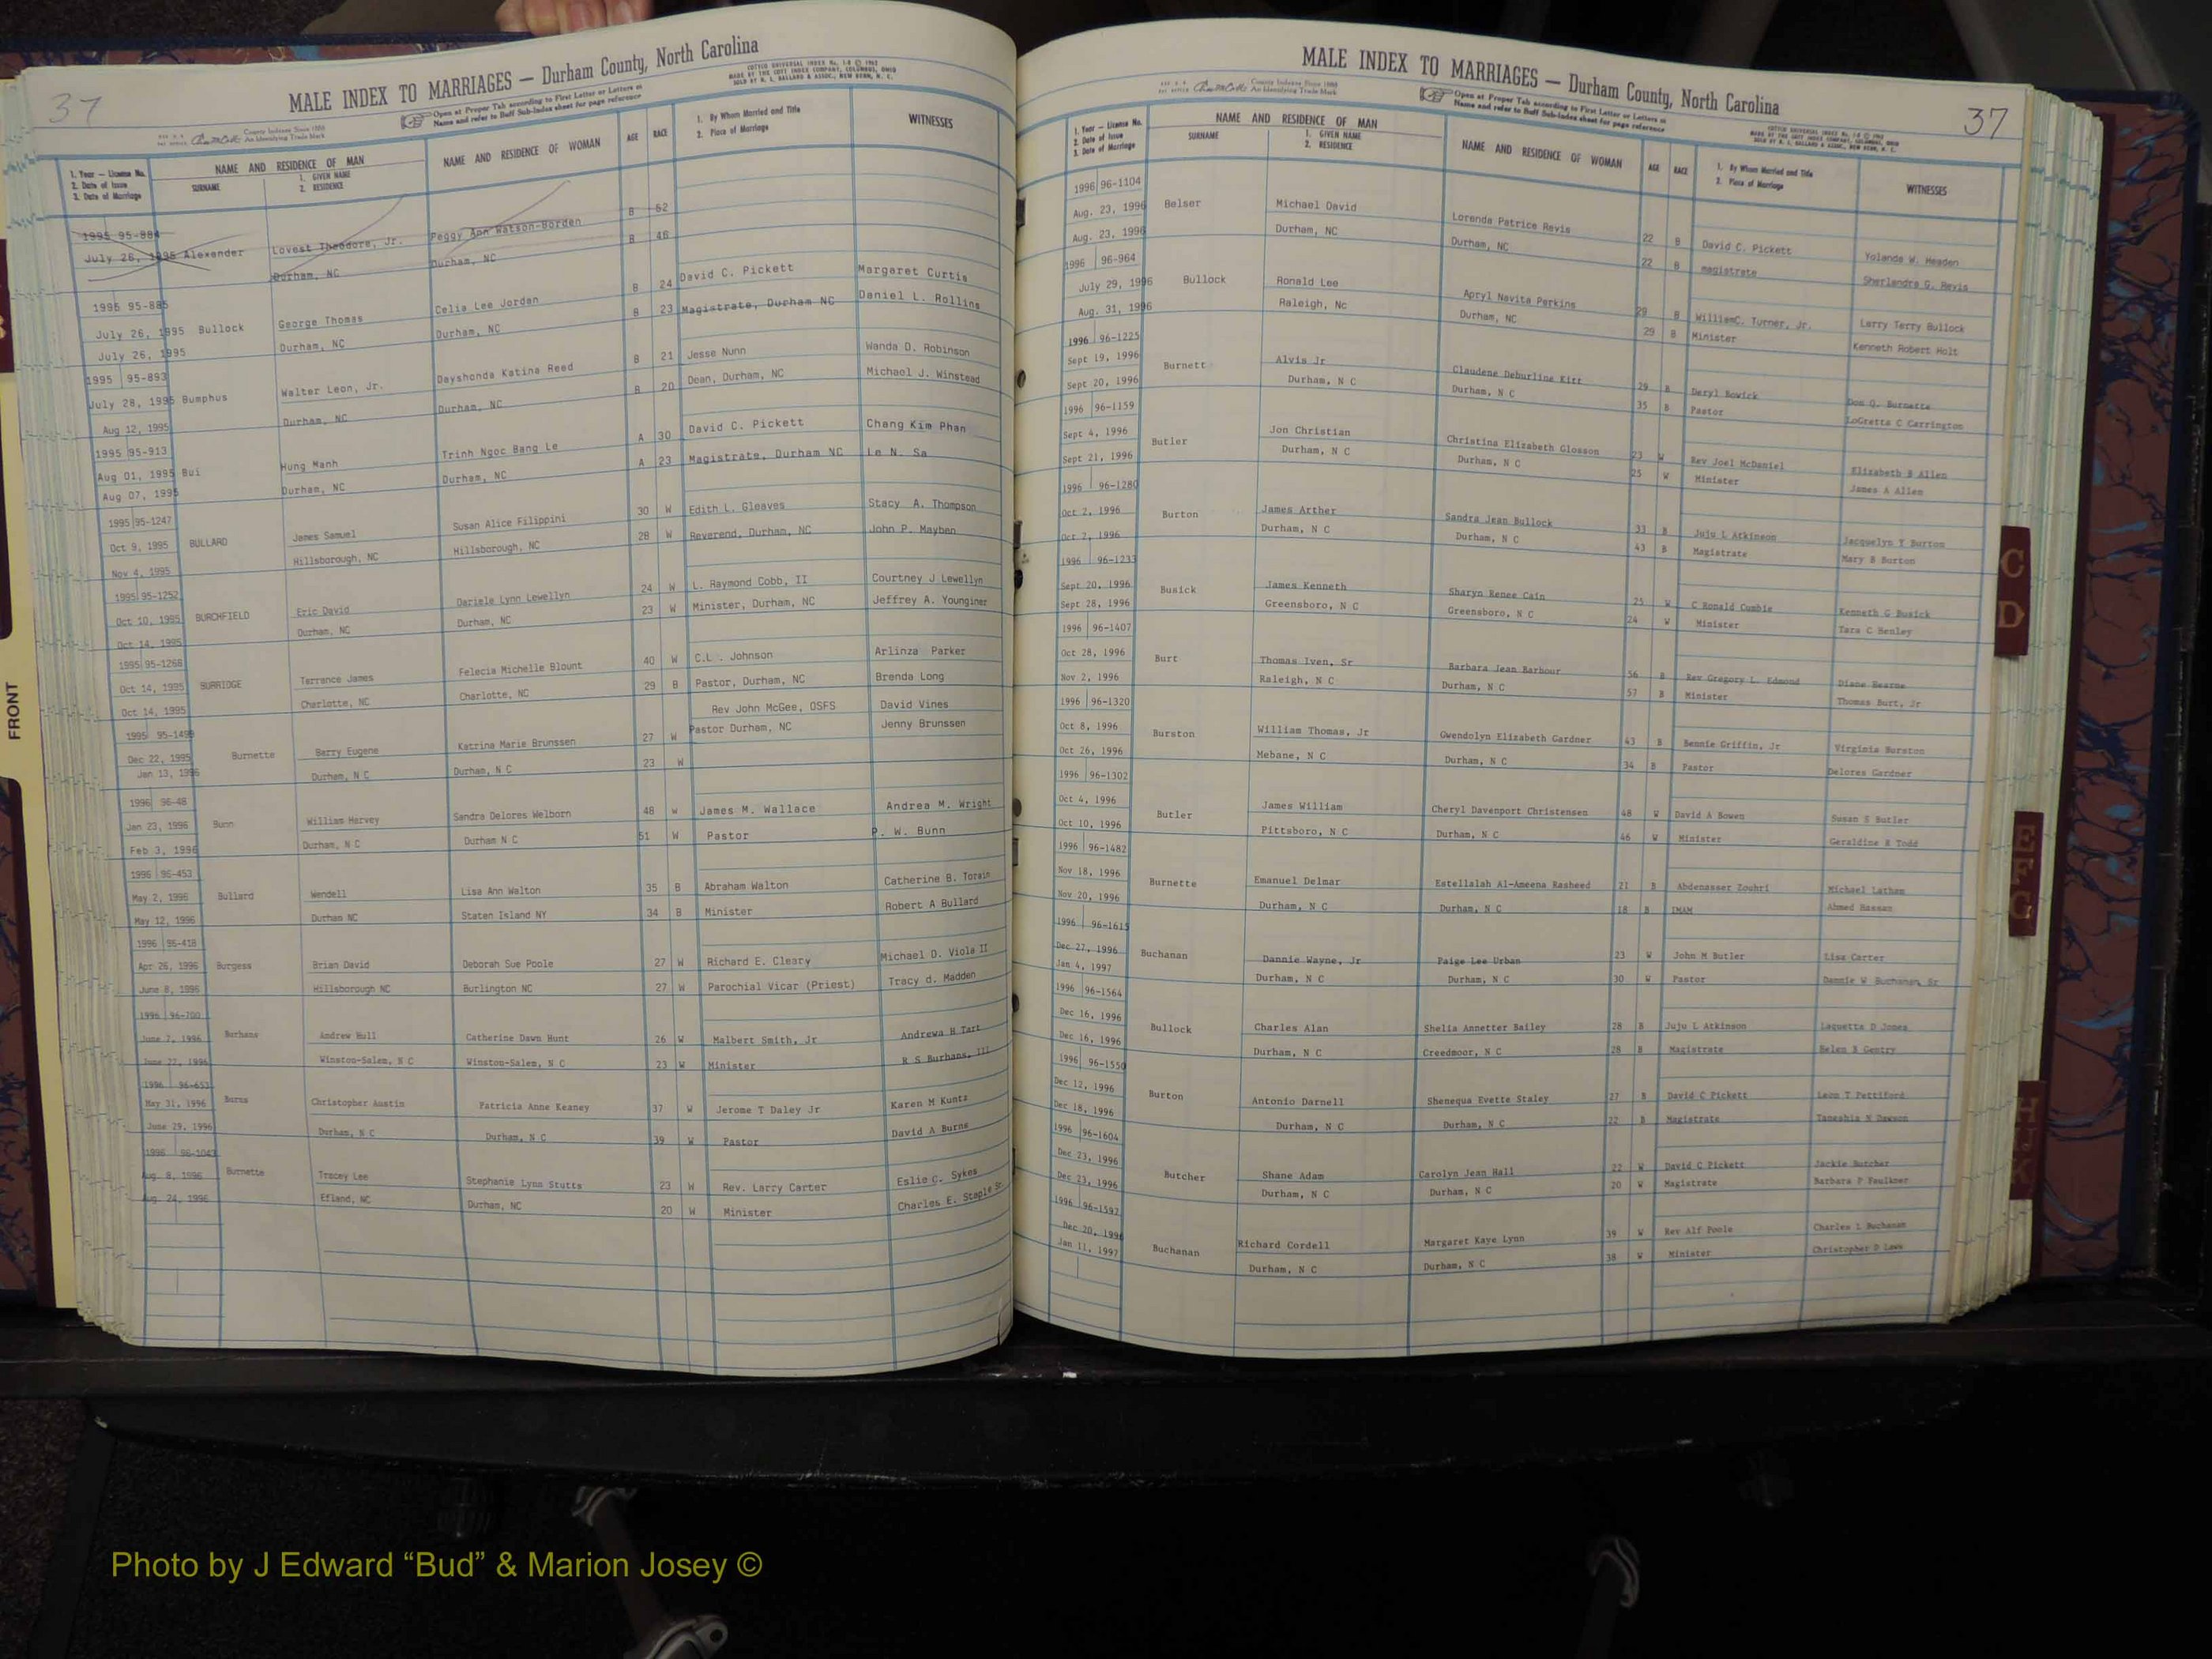 37
MALE INDEX TO MARRIAGES — Durham County, North Carolina
COTTCO UNIVERSAL INDEX No. 1-S © 1962
MADE BY THE COTT INDEX COMPANY, COLUMBUS, OHIO
SOLD BY R. L. BALLARD & ASSOC., NEW BERN, N. C.
County Indexes Since 1888
An Identifying Trade Mark
Open at Proper Tab according to First Letter or Letters of
Name and refer to Buff Sub-Index sheet for page reference
1. Year — License No.
2. Date of Issue
3. Date of Marriage
NAME AND RESIDENCE OF MAN
SURNAME
1. GIVEN NAME
2. RESIDENCE
NAME AND RESIDENCE OF WOMAN
AGE
RACE
1. By Whom Married and Title
2. Place of Marriage
WITNESSES
1995 95-884
July 26, 1995 Alexander Lovest Theodore, Jr. Peggy Ann Watson-Borden B 62
Durham, NC Durham, NC B 46
1996 95-885
July 26, 1995 Bullock George Thomas Celia Lee Jordan B 24 David C. Pickett Margaret Curtis
July 26, 1995 Durham, NC Durham, NC B 23 Magistrate, Durham NC Daniel L. Rollins
1995 95-893
July 28, 1995 Bumphus Walter Leon, Jr. Dayshonda Katina Reed B 21 Jesse Nunn Wanda D. Robinson
Aug 12, 1995 Durham, NC Durham, NC B 20 Dean, Durham, NC Michael J. Winstead
1995 95-913
Aug 01, 1995 Bui Hung Manh Trinh Ngoc Bang Le A 30 David C. Pickett Chang Kim Phan
Aug 07, 1995 Durham, NC Durham, NC A 23 Magistrate, Durham NC Le N. Sa
1995 95-1247
Oct 9, 1995 BULLARD James Samuel Susan Alice Filippini 30 W Edith L. Gleaves Stacy A. Thompson
Nov 4, 1995 Hillsborough, NC Hillsborough, NC 28 W Reverend, Durham, NC John P. Mayben
1995 95-1252
Oct 10, 1995 BURCHFIELD Eric David Dariele Lynn Lewellyn 24 W L. Raymond Cobb, II Courtney J Lewellyn
Oct 14, 1995 Durham, NC Durham, NC 23 W Minister, Durham, NC Jeffrey A. Younginer
1995 95-1268
Oct 14, 1995 BURRIDGE Terrance James Felecia Michelle Blount 40 W C.L . Johnson Arlinza Parker
Oct 14, 1995 Charlotte, NC Charlotte, NC 29 B Pastor, Durham, NC Brenda Long
1995 95-1499
Dec 22, 1995 Burnette Barry Eugene Katrina Marie Brunssen 27 W Rev John McGee, OSFS David Vines
Jan 13, 1996 Durham, N C Durham, N C 23 W Pastor Durham, NC Jenny Brunssen
1996 96-48
Jan 23, 1996 Bunn William Harvey Sandra Delores Welborn 48 w James M. Wallace Andrea M. Wright
Feb 3, 1996 Durham, N C Durham N C 51 W Pastor P. W. Bunn
1996 96-453
May 2, 1996 Bullard Wendell Lisa Ann Walton 35 B Abraham Walton Catherine B. Torain
May 12, 1996 Durham NC Staten Island NY 34 B Minister Robert A Bullard
1996 96-418
Apr 26, 1996 Burgess Brian David Deborah Sue Poole 27 W Richard E. Cleary Michael D. Viola II
June 8, 1996 Hillsborough NC Burlington NC 27 W Parochial Vicar (Priest) Tracy d. Madden
1996 96-700
June 7, 1996 Burhans Andrew Hull Catherine Dawn Hunt 26 W Malbert Smith, Jr Andrewa H Tart
June 22, 1996 Winston-Salem, N C Winston-Salem, N C 23 W Minister R S Burhans, III
1996 96-653
May 31, 1996 Burns Christopher Austin Patricia Anne Keaney 37 W Jerome T Daley Jr Karen M Kuntz
June 29, 1996 Durham, N C Durham, N C 39 W Pastor David A Burns
1996 96-1043
Aug. 8, 1996 Burnette Tracey Lee Stephanie Lynn Stutts 23 W Rev. Larry Carter Eslie C. Sykes
Aug. 24, 1996 Efland, NC Durham, NC 20 W Minister Charles E. Staple Sr.
MALE INDEX TO MARRIAGES — Durham County, North Carolina
37
County Indexes Since 1888
An Identifying Trade Mark
Open at Proper Tab according to First Letter or Letters of
Name and refer to Buff Sub-Index sheet for page reference
COTTCO UNIVERSAL INDEX No. 1-S © 1962
MADE BY THE COTT INDEX COMPANY, COLUMBUS, OHIO
SOLD BY R. L. BALLARD & ASSOC., NEW BERN, N. C.
1. Year — License No.
2. Date of Issue
3. Date of Marriage
NAME AND RESIDENCE OF MAN
SURNAME
1. GIVEN NAME
2. RESIDENCE
NAME AND RESIDENCE OF WOMAN
AGE
RACE
1. By Whom Married and Title
2. Place of Marriage
WITNESSES
1996 96-1104
Aug. 23, 1996 Belser Michael David Lorenda Patrice Revis 22 B David C. Pickett Yolanda W. Headen
Aug. 23, 1996 Durham, NC Durham, NC 22 B magistrate Sherlandra G. Revis
1996 96-964
July 29, 1996 Bullock Ronald Lee Apryl Navita Perkins 29 B WilliamC. Turner, Jr. Larry Terry Bullock
Aug. 31, 1996 Raleigh, Nc Durham, NC 29 B Minister Kenneth Robert Holt
1996 96-1225
Sept 19, 1996 Burnett Alvis Jr Claudene Deburline Kitt 29 B Deryl Bowick Don Q. Burnette
Sept 20, 1996 Durham, N C Durham, N C 35 B Pastor LoGretta C Carrington
1996 96-1159
Sept 4, 1996 Butler Jon Christian Christina Elizabeth Glosson 23 W Rev Joel McDaniel Elizabeth B Allen
Sept 21, 1996 Durham, N C Durham, N C 25 W Minister James A Allen
1996 96-1280
Oct 2, 1996 Burton James Arther Sandra Jean Bullock 33 B Juju L Atkinson Jacquelyn Y Burton
Oct 2, 1996 Durham, N C Durham, N C 43 B Magistrate Mary B Burton
1996 96-1233
Sept 20, 1996 Busick James Kenneth Sharyn Renee Cain 25 W C Ronald Cumbie Kenneth G Busick
Sept 28, 1996 Greensboro, N C Greensboro, N C 24 W Minister Tara C Henley
1996 96-1407
Oct 28, 1996 Burt Thomas Iven, Sr Barbara Jean Barbour 56 B Rev Gregory L. Edmond Diane Hearne
Nov 2, 1996 Raleigh, N C Durham, N C 57 B Minister Thomas Burt, Jr
1996 96-1320
Oct 8, 1996 Burston William Thomas, Jr Gwendolyn Elizabeth Gardner 43 B Bennie Griffin, Jr Virginia Burston
Oct 26, 1996 Mebane, N C Durham, N C 34 B Pastor Delores Gardner
1996 96-1302
Oct 4, 1996 Butler James William Cheryl Davenport Christensen 48 W David A Bowen Susan S Butler
Oct 10, 1996 Pittsboro, N C Durham, N C 46 W Minister Geraldine R Todd
1996 96-1482
Nov 18, 1996 Burnette Emanuel Delmar Estellalah Al-Ameena Rasheed 21 B Abdenasser Zouhri Michael Latham
Nov 20, 1996 Durham, N C Durham, N C 18 B IMAM Ahmed Hassan
1996 96-1615
Dec 27, 1996 Buchanan Dannie Wayne, Jr Paige Lee Urban 23 W John M Butler Lisa Carter
Jan 4, 1997 Durham, N C Durham, N C 30 W Pastor Dannie W Buchanan, Sr
1996 96-1564
Dec 16, 1996 Bullock Charles Alan Shelia Annetter Bailey 28 B Juju L Atkinson Laquetta D Jones
Dec 16, 1996 Durham, N C Creedmoor, N C 28 B Magistrate Helen B Gentry
1996 96-1550
Dec 12, 1996 Burton Antonio Darnell Shenequa Evette Staley 27 B David C Pickett Leon T Pettiford
Dec 18, 1996 Durham, N C Durham, N C 22 B Magistrate Taneshia N Dawson
1996 96-1604
Dec 23, 1996 Butcher Shane Adam Carolyn Jean Hall 22 W David C Pickett Jackie Butcher
Dec 23, 1996 Durham, N C Durham, N C 20 W Magistrate Barbara P Faulkner
1996 96-1592
Dec 20, 1996 Buchanan Richard Cordell Margaret Kaye Lynn 39 W Rev Alf Poole Charles L Buchanan
Jan 11, 1997 Durham, N C Durham, N C 38 W Minister Christopher D Laws
FRONT
C
D
E
F
G
H
Photo by J Edward “Bud” & Marion Josey ©